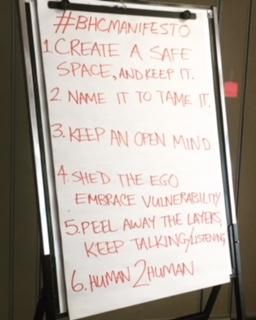 #BHCMANIFESTO
1. CREATE A SAFE
SPACE, AND KEEP IT.
2. NAME IT TO TAME IT.
3. KEEP AN OPEN MIND.
4. SHED THE EGO
EMBRACE VULNERABILITY
5. PEEL AWAY THE LAYERS,
KEEP TALKING/LISTENING
6. HUMAN 2 HUMAN